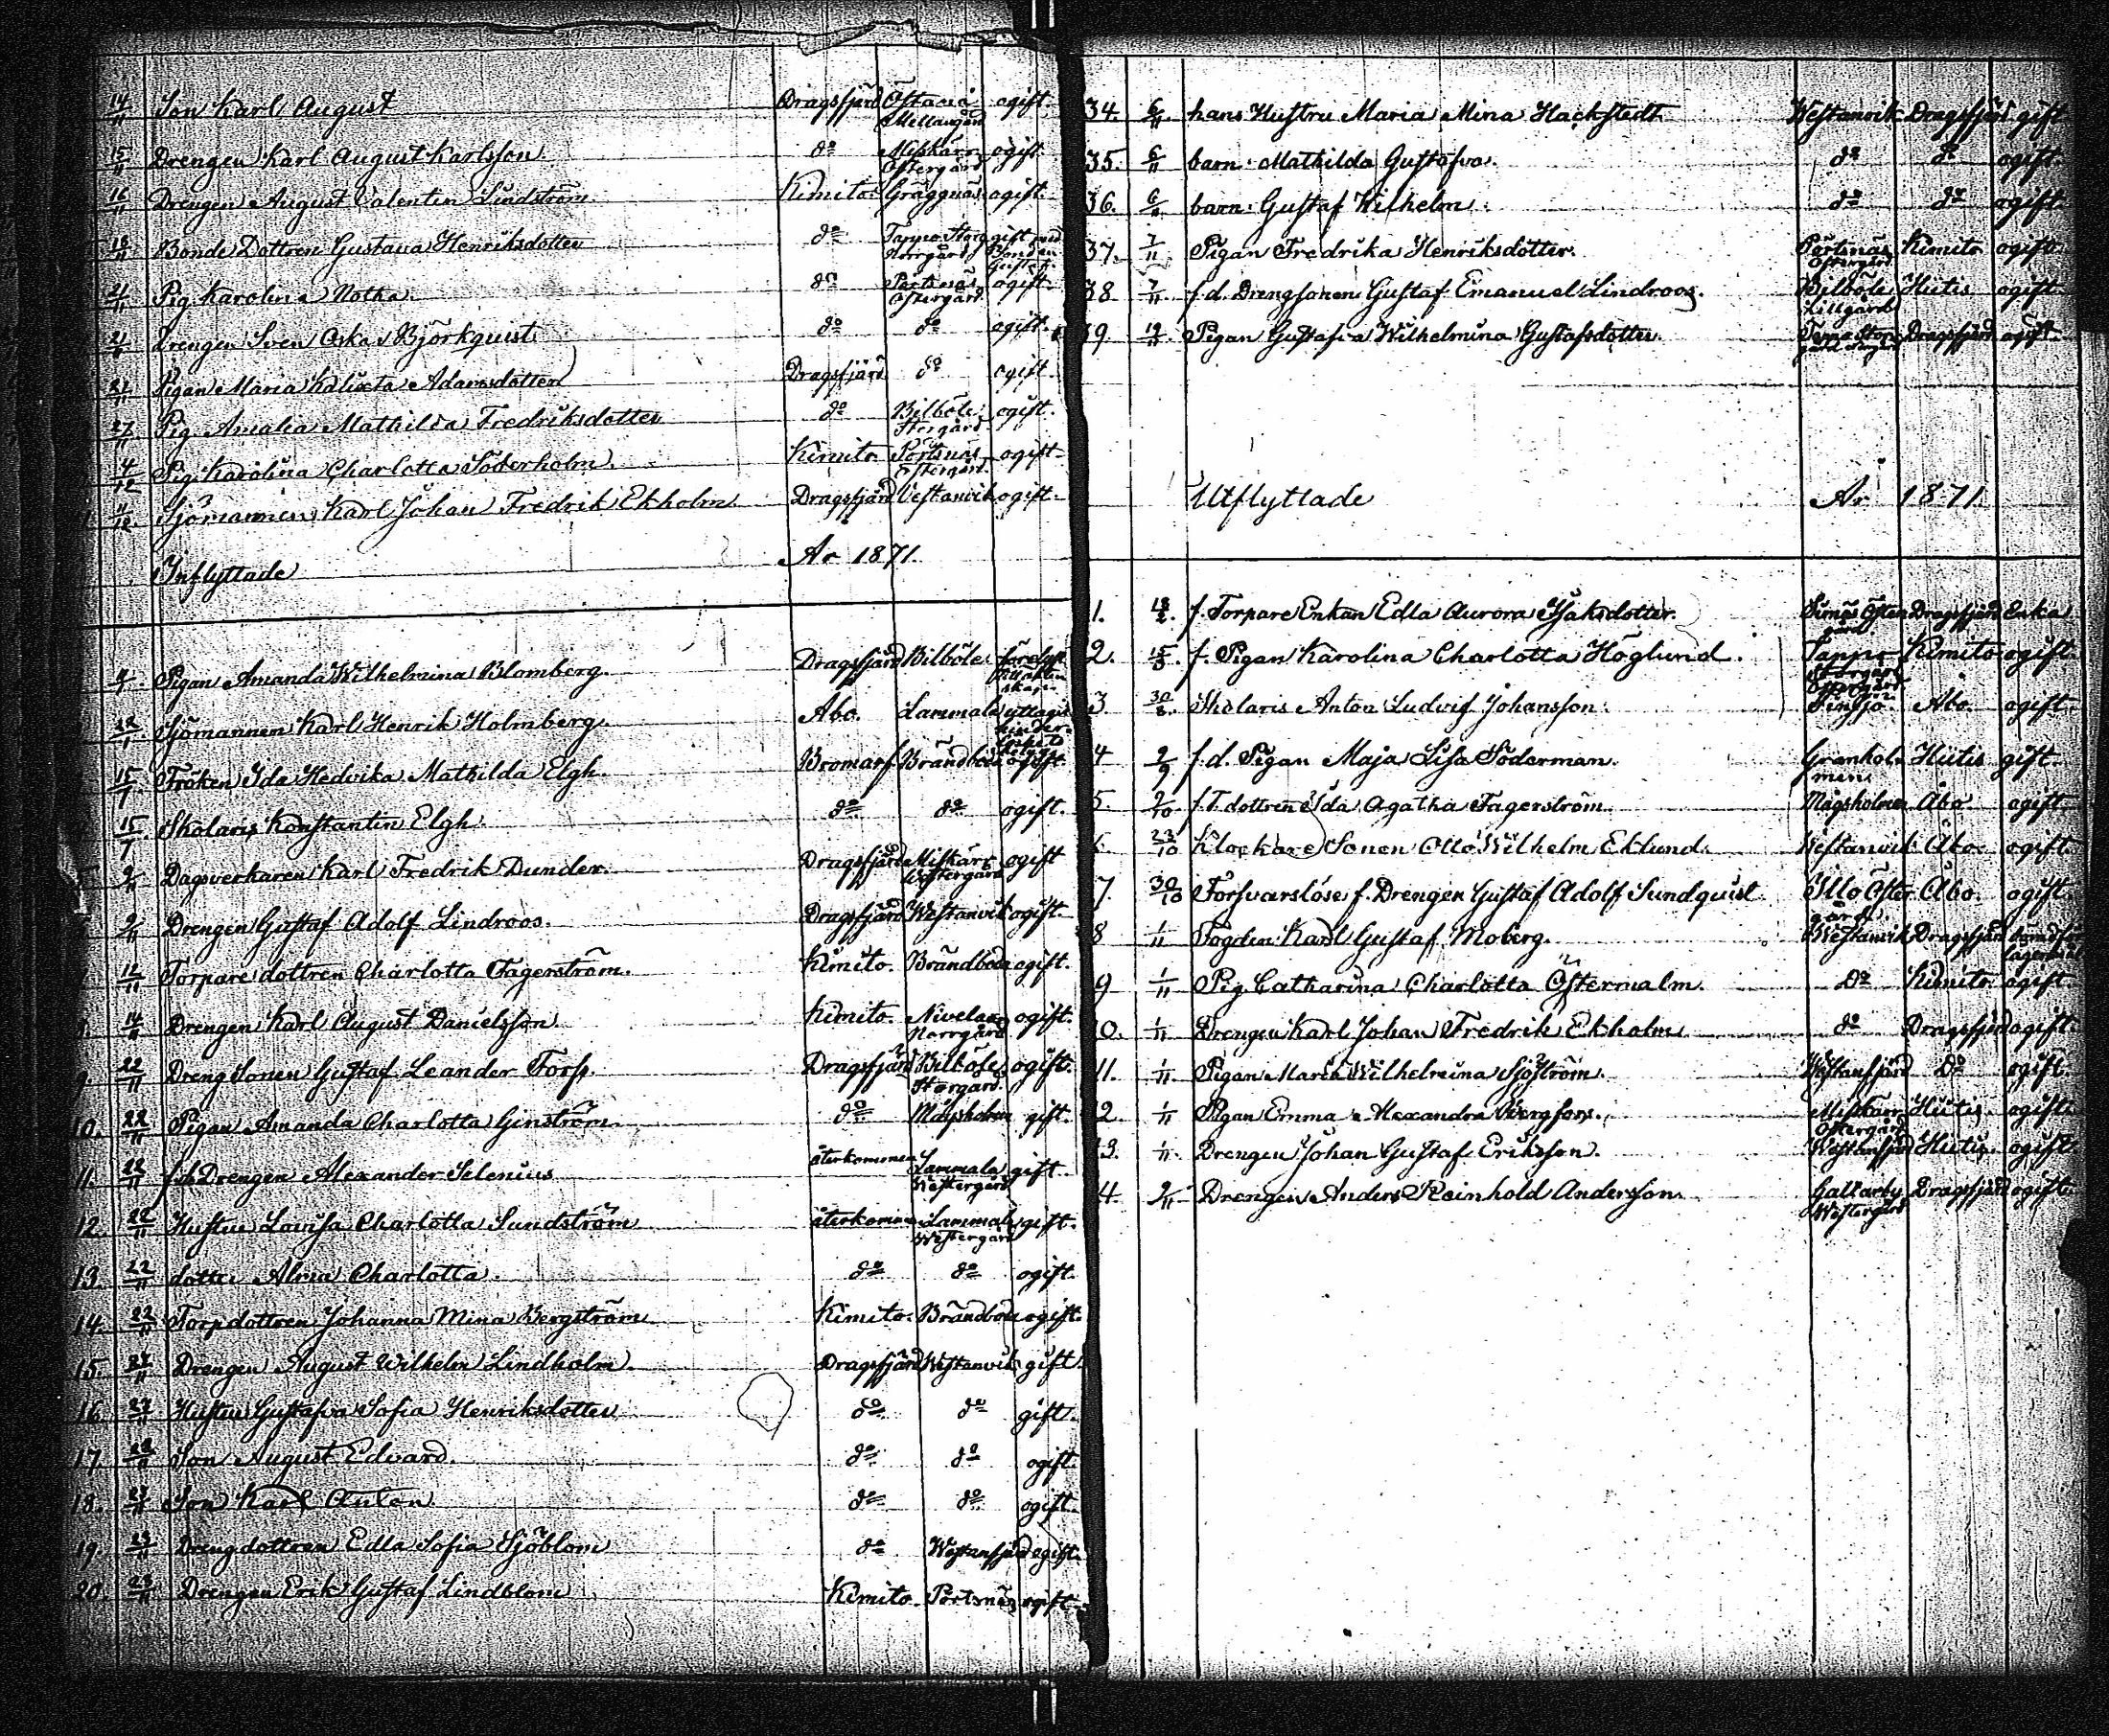 14/11 Son Karl August Dragsfjärd Östanå Mellangård ogift.
15/11 Drengen Karl August Karlsson do Misskärr Östergård ogift.
16/11 Drengen August Valentin Lindström Kimito Gräggnäs ogift.
18/11 Bonde Dottren Gustava Henriksdotter do Tappo Norrgård gift med Bonden
21/11 Pig. Karolina Notka do Pörtsnäs Östergård ogift.
21/11 Drengen Sven Oskar Björkquist do do ogift.
21/11 Pigan Maria Kalixta Adamsdotter Dragsfjärd do ogift
27/11 Pig. Amalia Mathilda Fredriksdotter do Bilböle Storgård ogift.
4/12 Pig. Karolina Charlotta Söderholm. Kimito Pörtsnäs Östergård ogift
11/12 Sjömannen Karl Johan Fredrik Ekholm Dragsfjärd Vestanvik ogift
Inflyttade År 1871.
Pigan Amanda Wilhelmina Blomberg. Dragsfjärd Bilböle
22/1 Sjömannen Karl Henrik Holmberg. Åbo. Lammala
15/7 Fröken Ida Hedvika Mathilda Elgh. Bromarf Brändboda ogift.
15/7 Skolaris Konstantin Elgh do do ogift.
2/11 Dagsverkaren Karl Fredrik Dunder. Dragsfjärd Misskärr Westergård ogift
2/11 Drengen Gustaf Adolf Lindroos. Dragsfjärd Westanvik ogift.
12/11 Torpare dottren Charlotta Fagerström. Kimito. Brändboda ogift.
14/11 Drengen Karl August Danielsson Kimito. Nivelax Norrgård ogift.
9. 22/11 Dreng Sonen Gustaf Leander Forss. Dragsfjärd Bilböle Storgård ogift.
10. 22/11 Pigan Amanda Charlotta Ginström. do Mågsholm gift.
11. 22/11 Drengen Alexander Selenius återkommen Lammala Westergård gift
12. 22/11 Hustru Lovisa Charlotta Sundström återkommen Lammala Westergård gift.
13. 22/11 dotter Alma Charlotta. do do ogift.
14. 22/11 Torpdottren Johanna Mina Bergström Kimito. Brändboda ogift.
15. 27/11 Drengen August Wilhelm Lindholm. Dragsfjärd Westanvik gift.
16. 27/11 Hustru Gustafva Sofia Henriksdotter do do gift.
17. Son August Edvard. do do ogift
18. Son Karl Anton do do ogift.
19. 29/11 Drengdottren Edla Sofia Sjöblom do Westanfjärd ogift.
20. 29/11 Drengen Erik Gustaf Lindblom Kimito. Pörtsnäs ogift.
34. 6/11 hans Hustru Maria Mina Hackstedt Westanvik Dragsfjärd gift
35. 6/11 barn Mathilda Gustafva. do do ogift.
36. 6/11 barn Gustaf Wilhelm. do do ogift.
37. 7/11 Pigan Fredrika Henriksdotter. Pörtsnäs Östergård Kimito ogift.
38 7/11 f.d. Drengsonen Gustaf Emanuel Lindroos. Bilböle Lillgård Hitis ogift.
39. Pigan Gustafva Wilhelmina Gustafsdotter. Dragsfjärd ogift.
Utflyttade År 1871.
1. 18/2. f. Torpare Enkan Edla Aurora Isaksdotter. Dragsfjärd Enka
2. 15/8. f. Pigan Karolina Charlotta Höglund. Tappo Kimito ogift.
3 30/8. Skolaris Anton Ludvig Johansson. Finsjö. Åbo. ogift.
4 2/9 f.d. Pigan Maja Lisa Söderman. Granholmen Hitis gift.
5. 2/10. f.T dottren Ida Agatha Fagerström. Mågsholmen Åbo ogift
6. 23/10 Klockare Sonen Otto Wilhelm Eklund. Westanvik Åbo. ogift.
7. 30/10 Försvarslöse f. Drengen Gustaf Adolf Sundquist Illo Östergård Åbo. ogift.
8 1/11 Fogden Karl Gustaf Moberg. Westanvik Dragsfjärd
9 1/11 Pig. Catharina Charlotta Östermalm. do Kimito ogift
10. 1/11 Drengen Karl Johan Fredrik Ekholm do Dragsfjärd ogift.
11. 1/11 Pigan Maria Wilhelmina Sjöström. Westanfjärd do ogift.
12. 1/11 Pigan Emma Alexandra Bergfors. Misskärr Östergård Hitis. ogift.
13. 1/11 Drengen Johan Gustaf Eriksson. Westanfjärd Hitis. ogift.
14. 2/11 Drengen Anders Reinhold Andersson. Galtarby Westergård Dragsfjärd ogift.